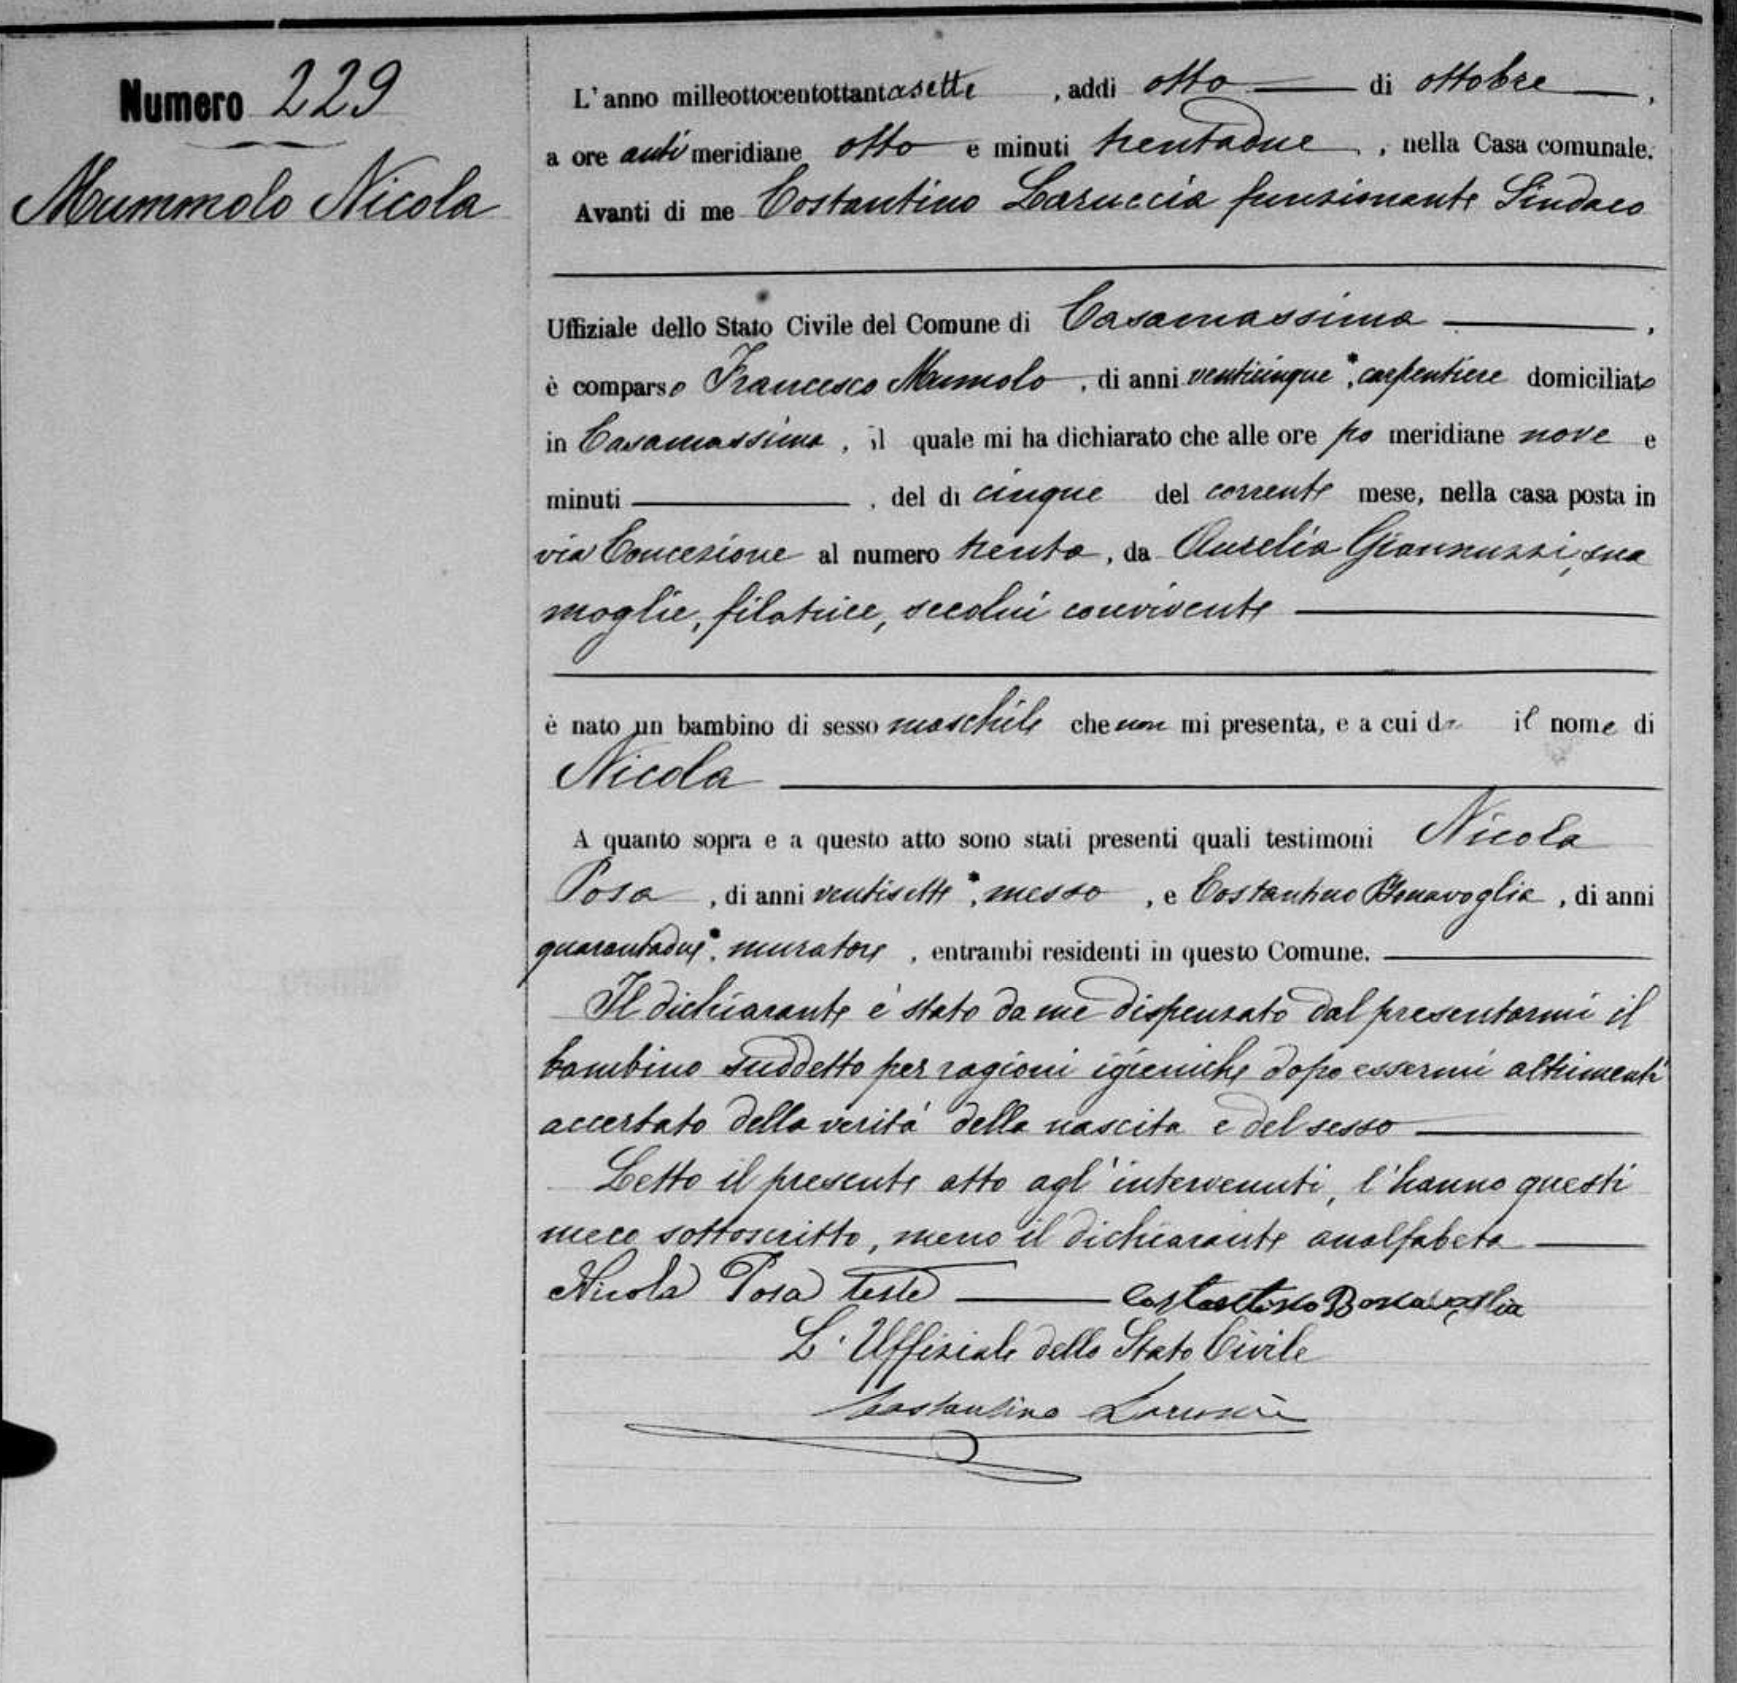 Numero 229
Mummolo Nicola
L'anno milleottocentottantasette, addi otto di ottobre,
a ore antimeridiane otto e minuti trentadue, nella Casa comunale.
Avanti di me Costantino Laruccia funzionante Sindaco
Uffiziale dello Stato Civile del Comune di Casamassima,
è comparso Francesco Mummolo, di anni venticinque, carpentiere domiciliato
in Casamassima, il quale mi ha dichiarato che alle ore po meridiane nove e
minuti , del dì cinque del corrente mese, nella casa posta in
via Concezione al numero trenta, da Aurelia Giannuzzi, sua
moglie, filatrice, secolui convivente
è nato un bambino di sesso maschile che non mi presenta, e a cui dà il nome di
Nicola
A quanto sopra e a questo atto sono stati presenti quali testimoni Nicola
Posa, di anni ventisette, messo, e Costantino Bonavoglia, di anni
quarantadue, muratore, entrambi residenti in questo Comune.
Il dichiarante è stato da me dispensato dal presentarmi il
bambino suddetto per ragioni igieniche dopo essermi altrimenti
accertato della verità della nascita e del sesso
Letto il presente atto agl'intervenuti, l'hanno questi
meco sottoscritto, meno il dichiarante analfabeta
Nicola Posa teste Costantino Bonavoglia
L'Uffiziale dello Stato Civile
Costantino Laruccia